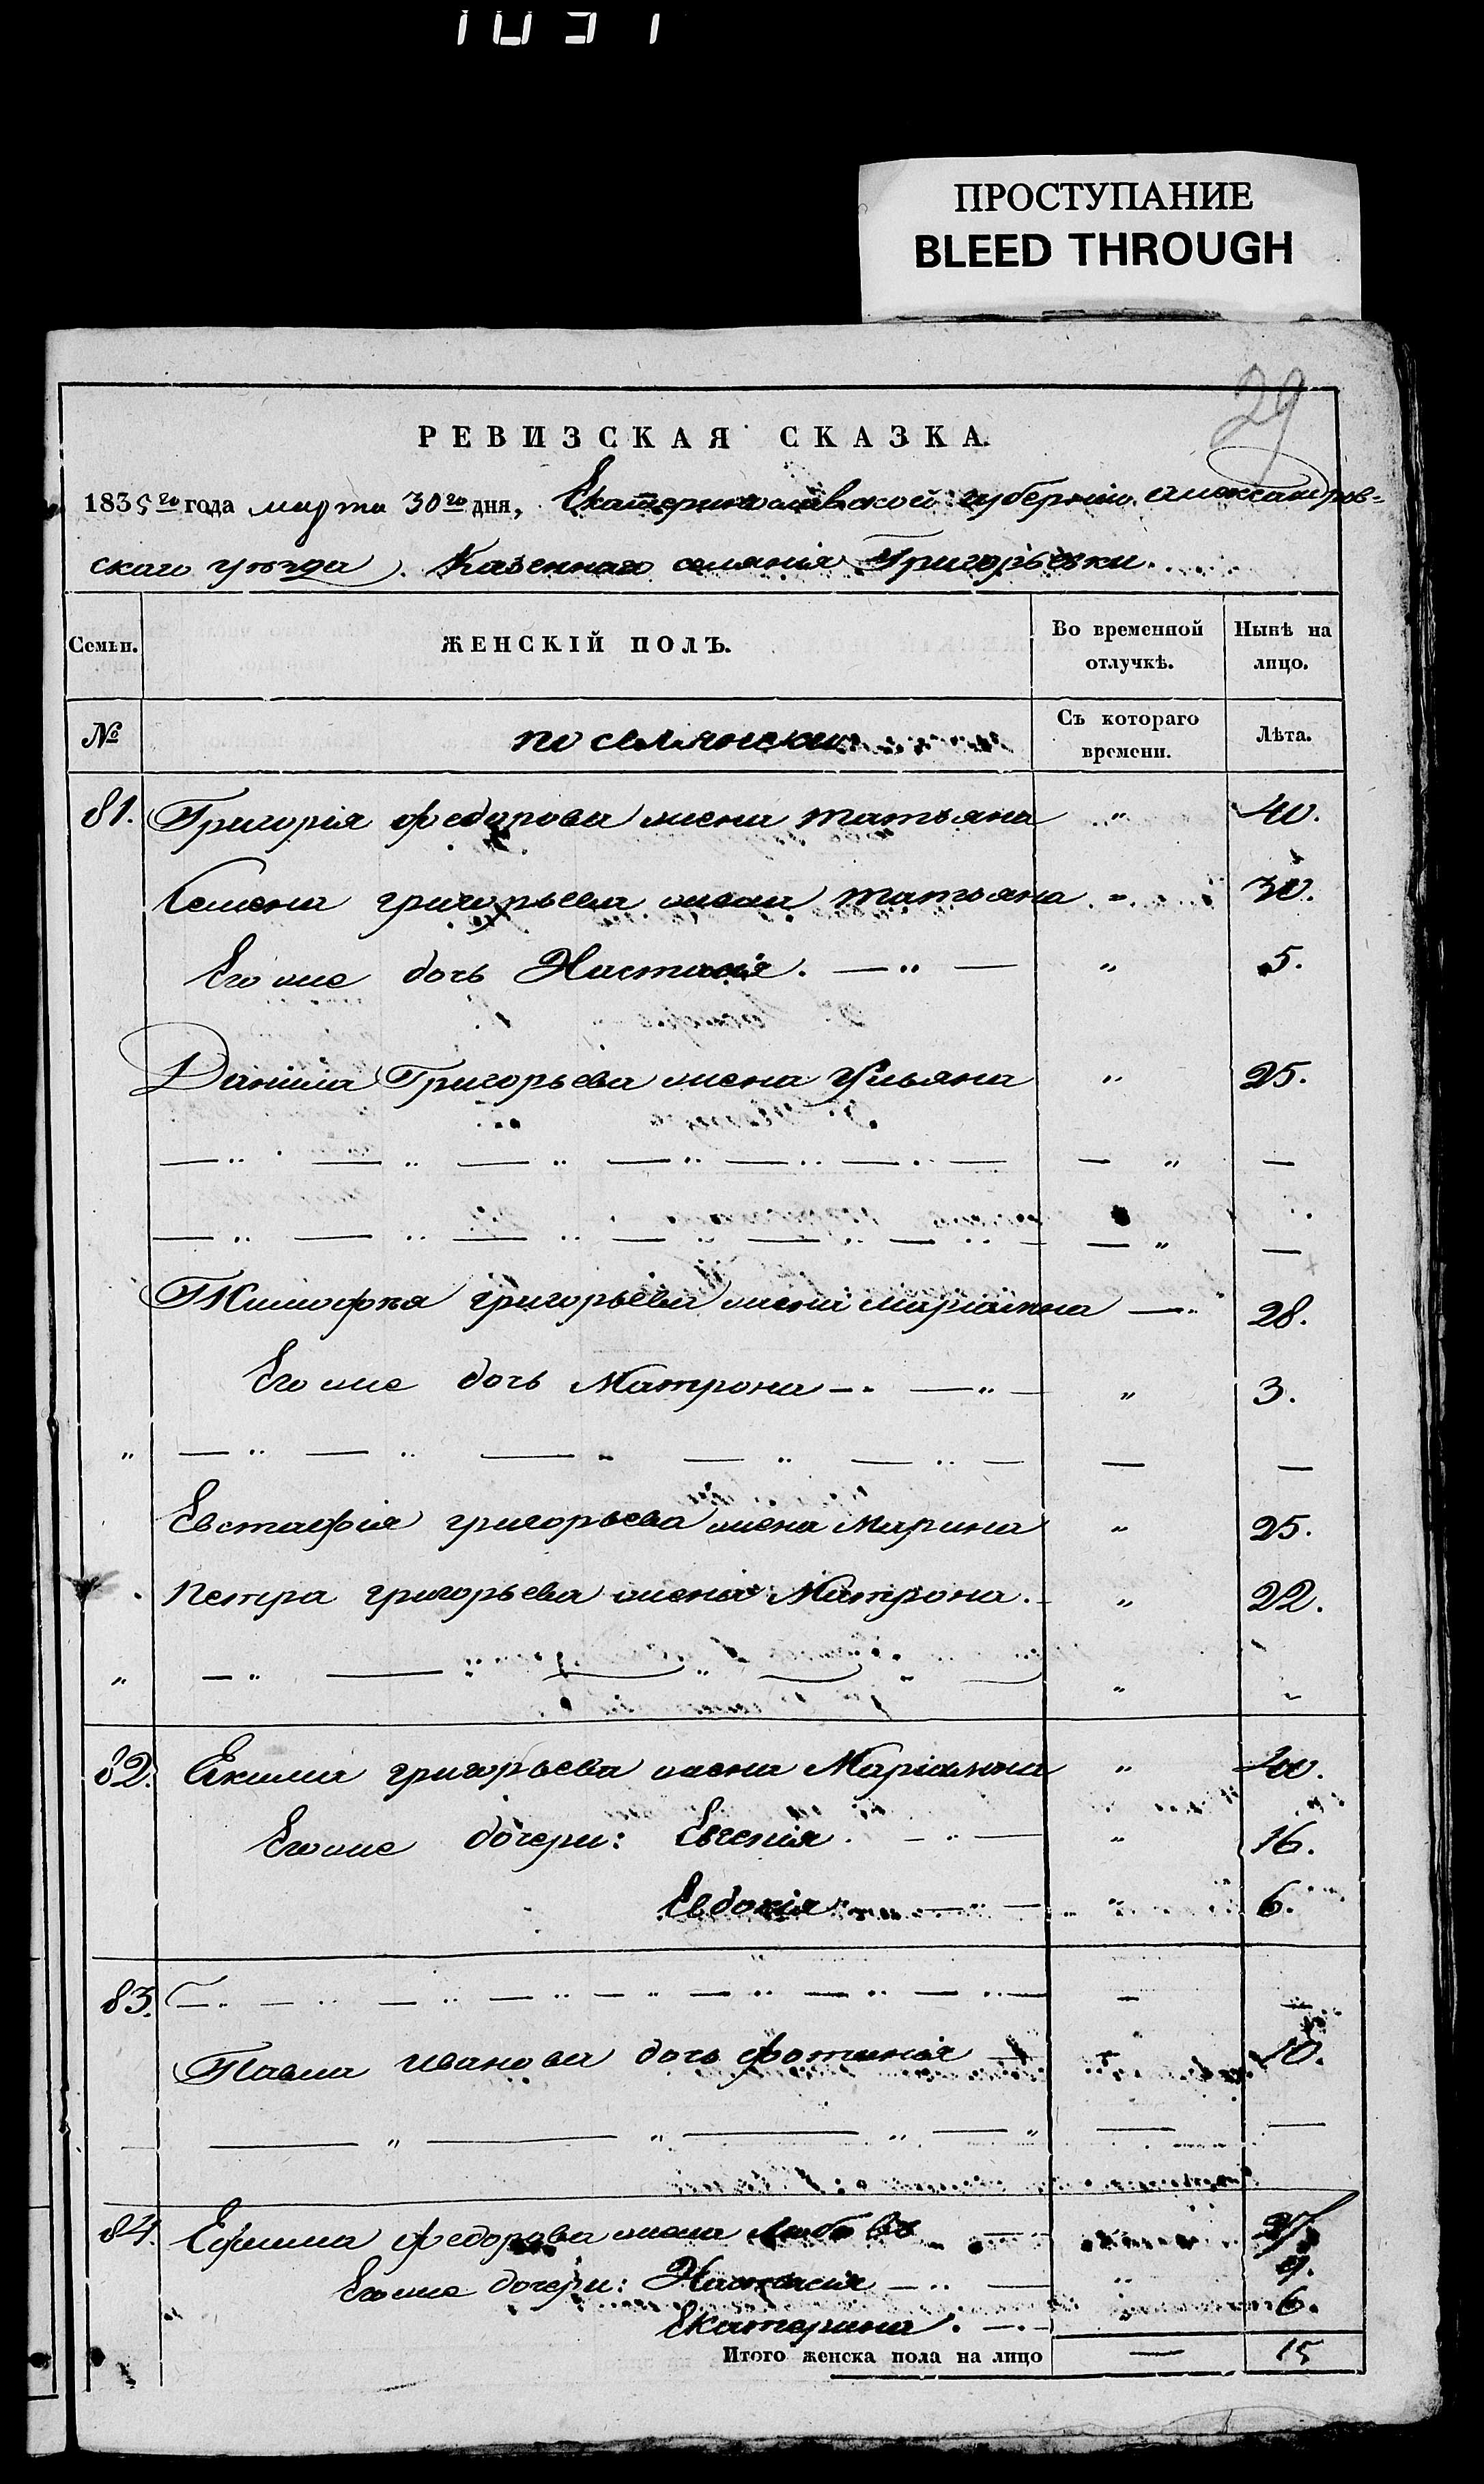 1031
ПРОСТУПАНИЕ
BLEED THROUGH
29
РЕВИЗСКАЯ СКАЗКА.
1835го года марта 30го дня, Екатеринославской губерніи Александров=
скаго уѣзда Казеннаго селянія Григорьевки.
Семьи. ЖЕНСКІЙ ПОЛЪ. Во временной отлучкѣ. Нынѣ на лицо.
№ поселянски Съ котораго времени. Лѣта.
81. Григорія Федорова жена Татьяна " 40.
Семена Григорьева жена Татьяна " 30.
Его же дочь Настасія. — " — " 5.
Даніила Григорьева жена Ульяна " 25.
Тимофѣя Григорьева жена Маріанна — " 28.
Его же дочь Матрона — " — " — " 3.
Евстафія Григорьева жена Марина " 25.
Петра Григорьева жена Матрона. " 22.
82. Екима Григорьева жена Маріанна " 40.
Его же дочери: Евгенія. — " — " 16.
Евдокія — " — " 6.
83.
Павла Иванова дочь Фотинія 10.
84. Ефима Федорова жена Любовь
Его же дочери: Настасія — " — " 9.
Екатерина. — " — " 6.
Итого женска пола на лицо — 15